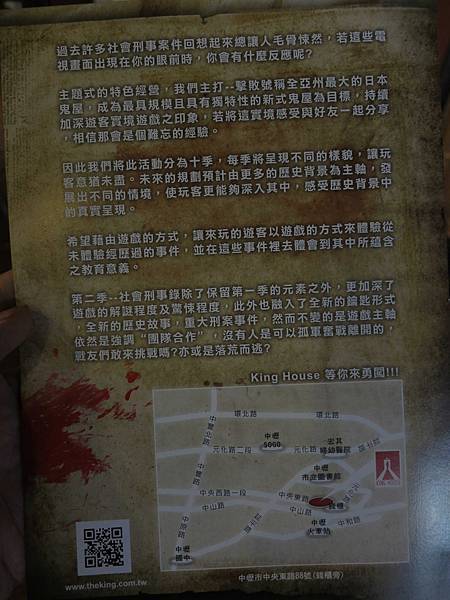 過去許多社會刑事案件回想起來總讓人毛骨悚然，若這些電
視畫面出現在你的眼前時，你會有什麼反應呢?
主題式的特色經營，我們主打--擊敗號稱全亞州最大的日本
鬼屋，成為最具規模且具有獨特性的新式鬼屋為目標，持續
加深遊客實境遊戲之印象，若將這實境感受與好友一起分享
，相信那會是個難忘的經驗。
因此我們將此活動分為十季，每季將呈現不同的樣貌，讓玩
客意猶未盡。未來的規劃預計由更多的歷史背景為主軸，發
展出不同的情境，使玩客更能夠深入其中，感受歷史背景中
的真實呈現。
希望藉由遊戲的方式，讓來玩的遊客以遊戲的方式來體驗從
未體驗經歷過的事件，並在這些事件裡去體會到其中所蘊含
之教育意義。
第二季--社會刑事錄除了保留第一季的元素之外，更加深了
遊戲的解謎程度及驚悚程度，此外也融入了全新的鑰匙形式
，全新的歷史故事，重大刑案事件，然而不變的是遊戲主軸
依然是強調“團隊合作”，沒有人是可以孤軍奮戰離開的，
戰友們敢來挑戰嗎?亦或是落荒而逃?
King House 等你來勇闖!!!
環北路
環北路
中豐北路
元化路二段
中壢
SOGO
元化路
宏其
婦幼醫院
中壢
市立圖書館
中豐路
中央西路一段
中央東路
錢櫃
中山路
中山路
中壢
火車站
中和路
中豐路
中壢
國中
KING HOUSE
www.theking.com.tw
中壢市中央東路88號(錢櫃旁)